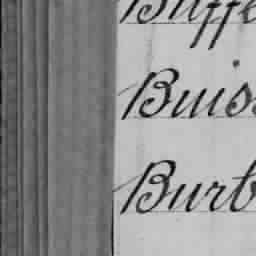 Buffe
Buiss
Burb